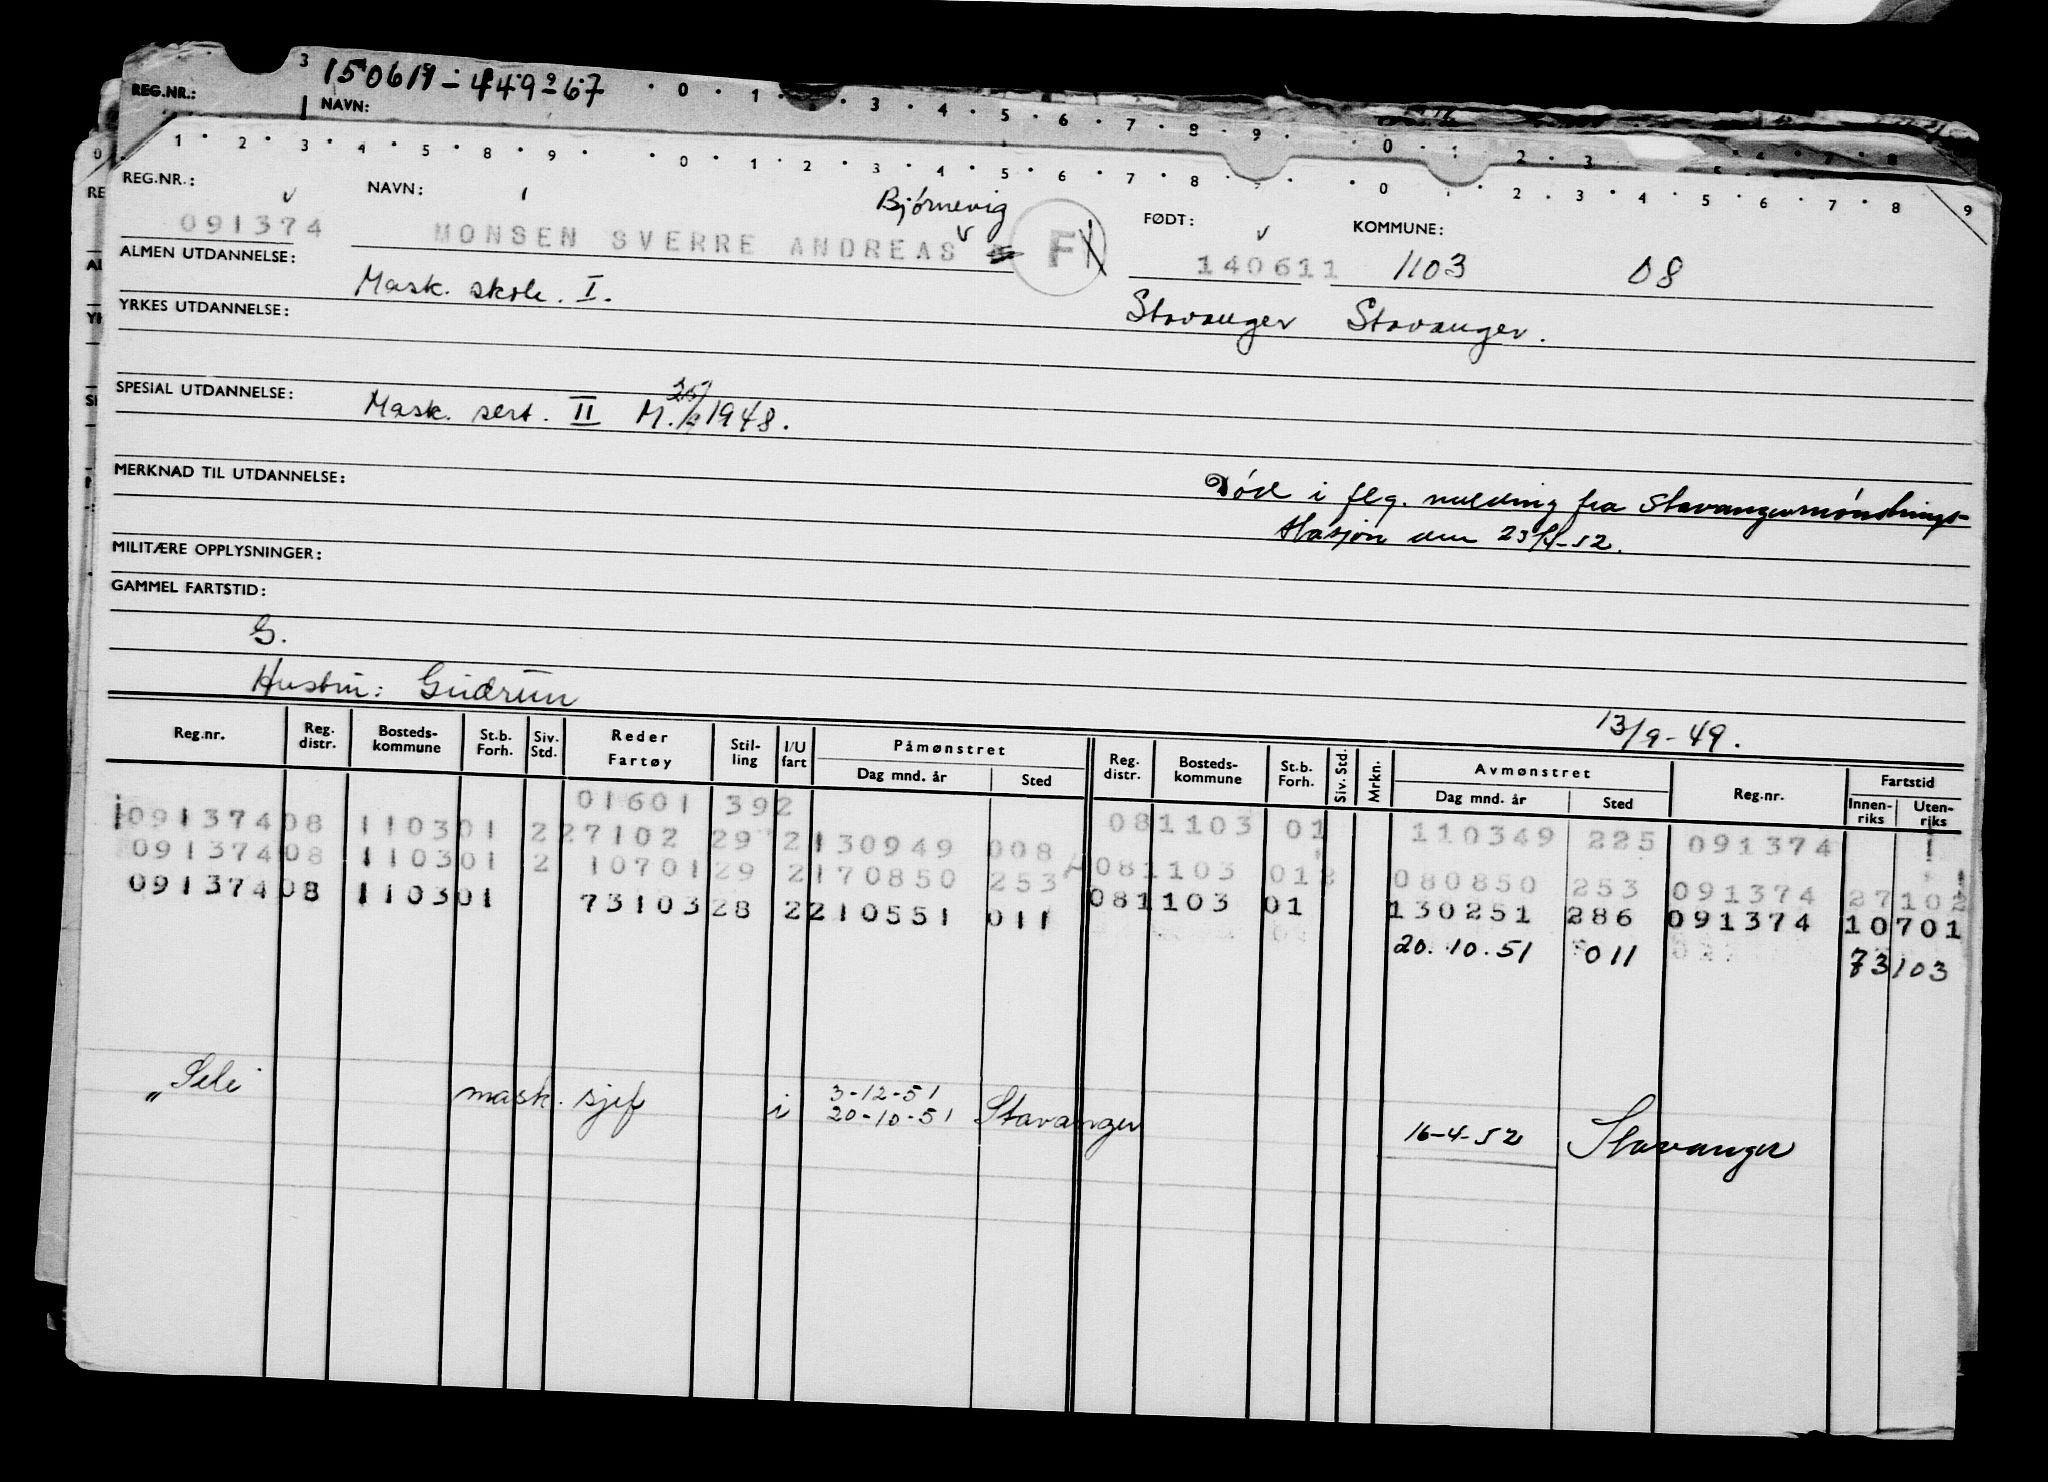 150611-449-67
REG.NR.:
NAVN:
REG.NR.: NAVN: Bjørnevig FØDT: KOMMUNE:
091374 MONSEN SVERRE ANDREAS F 140611 1103 08
ALMEN UTDANNELSE: Mask. skole. I. Stavanger Stavanger.
YRKES UTDANNELSE:
SPESIAL UTDANNELSE: Mask. sert. II M. 1948.
MERKNAD TIL UTDANNELSE: Død i flg. melding fra Stavangermønstrings-
stasjon den 23/4-52.
MILITÆRE OPPLYSNINGER:
GAMMEL FARTSTID:
G.
Hustru: Gudrun
13/9-49.
Reg.nr. Reg. distr. Bosteds-kommune St.b. Forh. Siv. Std. Reder Fartøy Stil-ling I/U fart Påmønstret Dag mnd. år Sted Reg. distr. Bosteds-kommune St.b. Forh. Siv. Std. Mrkn. Avmønstret Dag mnd. år Sted Reg.nr. Fartstid Innen-riks Uten-riks
01601 392 081103 01 110349 225 091374
091374 08 1103 01 2 27102 29 2 130949 008 081103 01 080850 253 091374 27102
091374 08 1103 01 2 10701 29 2 170850 253 081103 01 130251 286 091374 10701
091374 08 1103 01 73103 28 2 210551 011 20.10.51 011 73103
"Sele" mask. sjef i 3-12-51
20-10-51 Stavanger 16-4-52 Stavanger